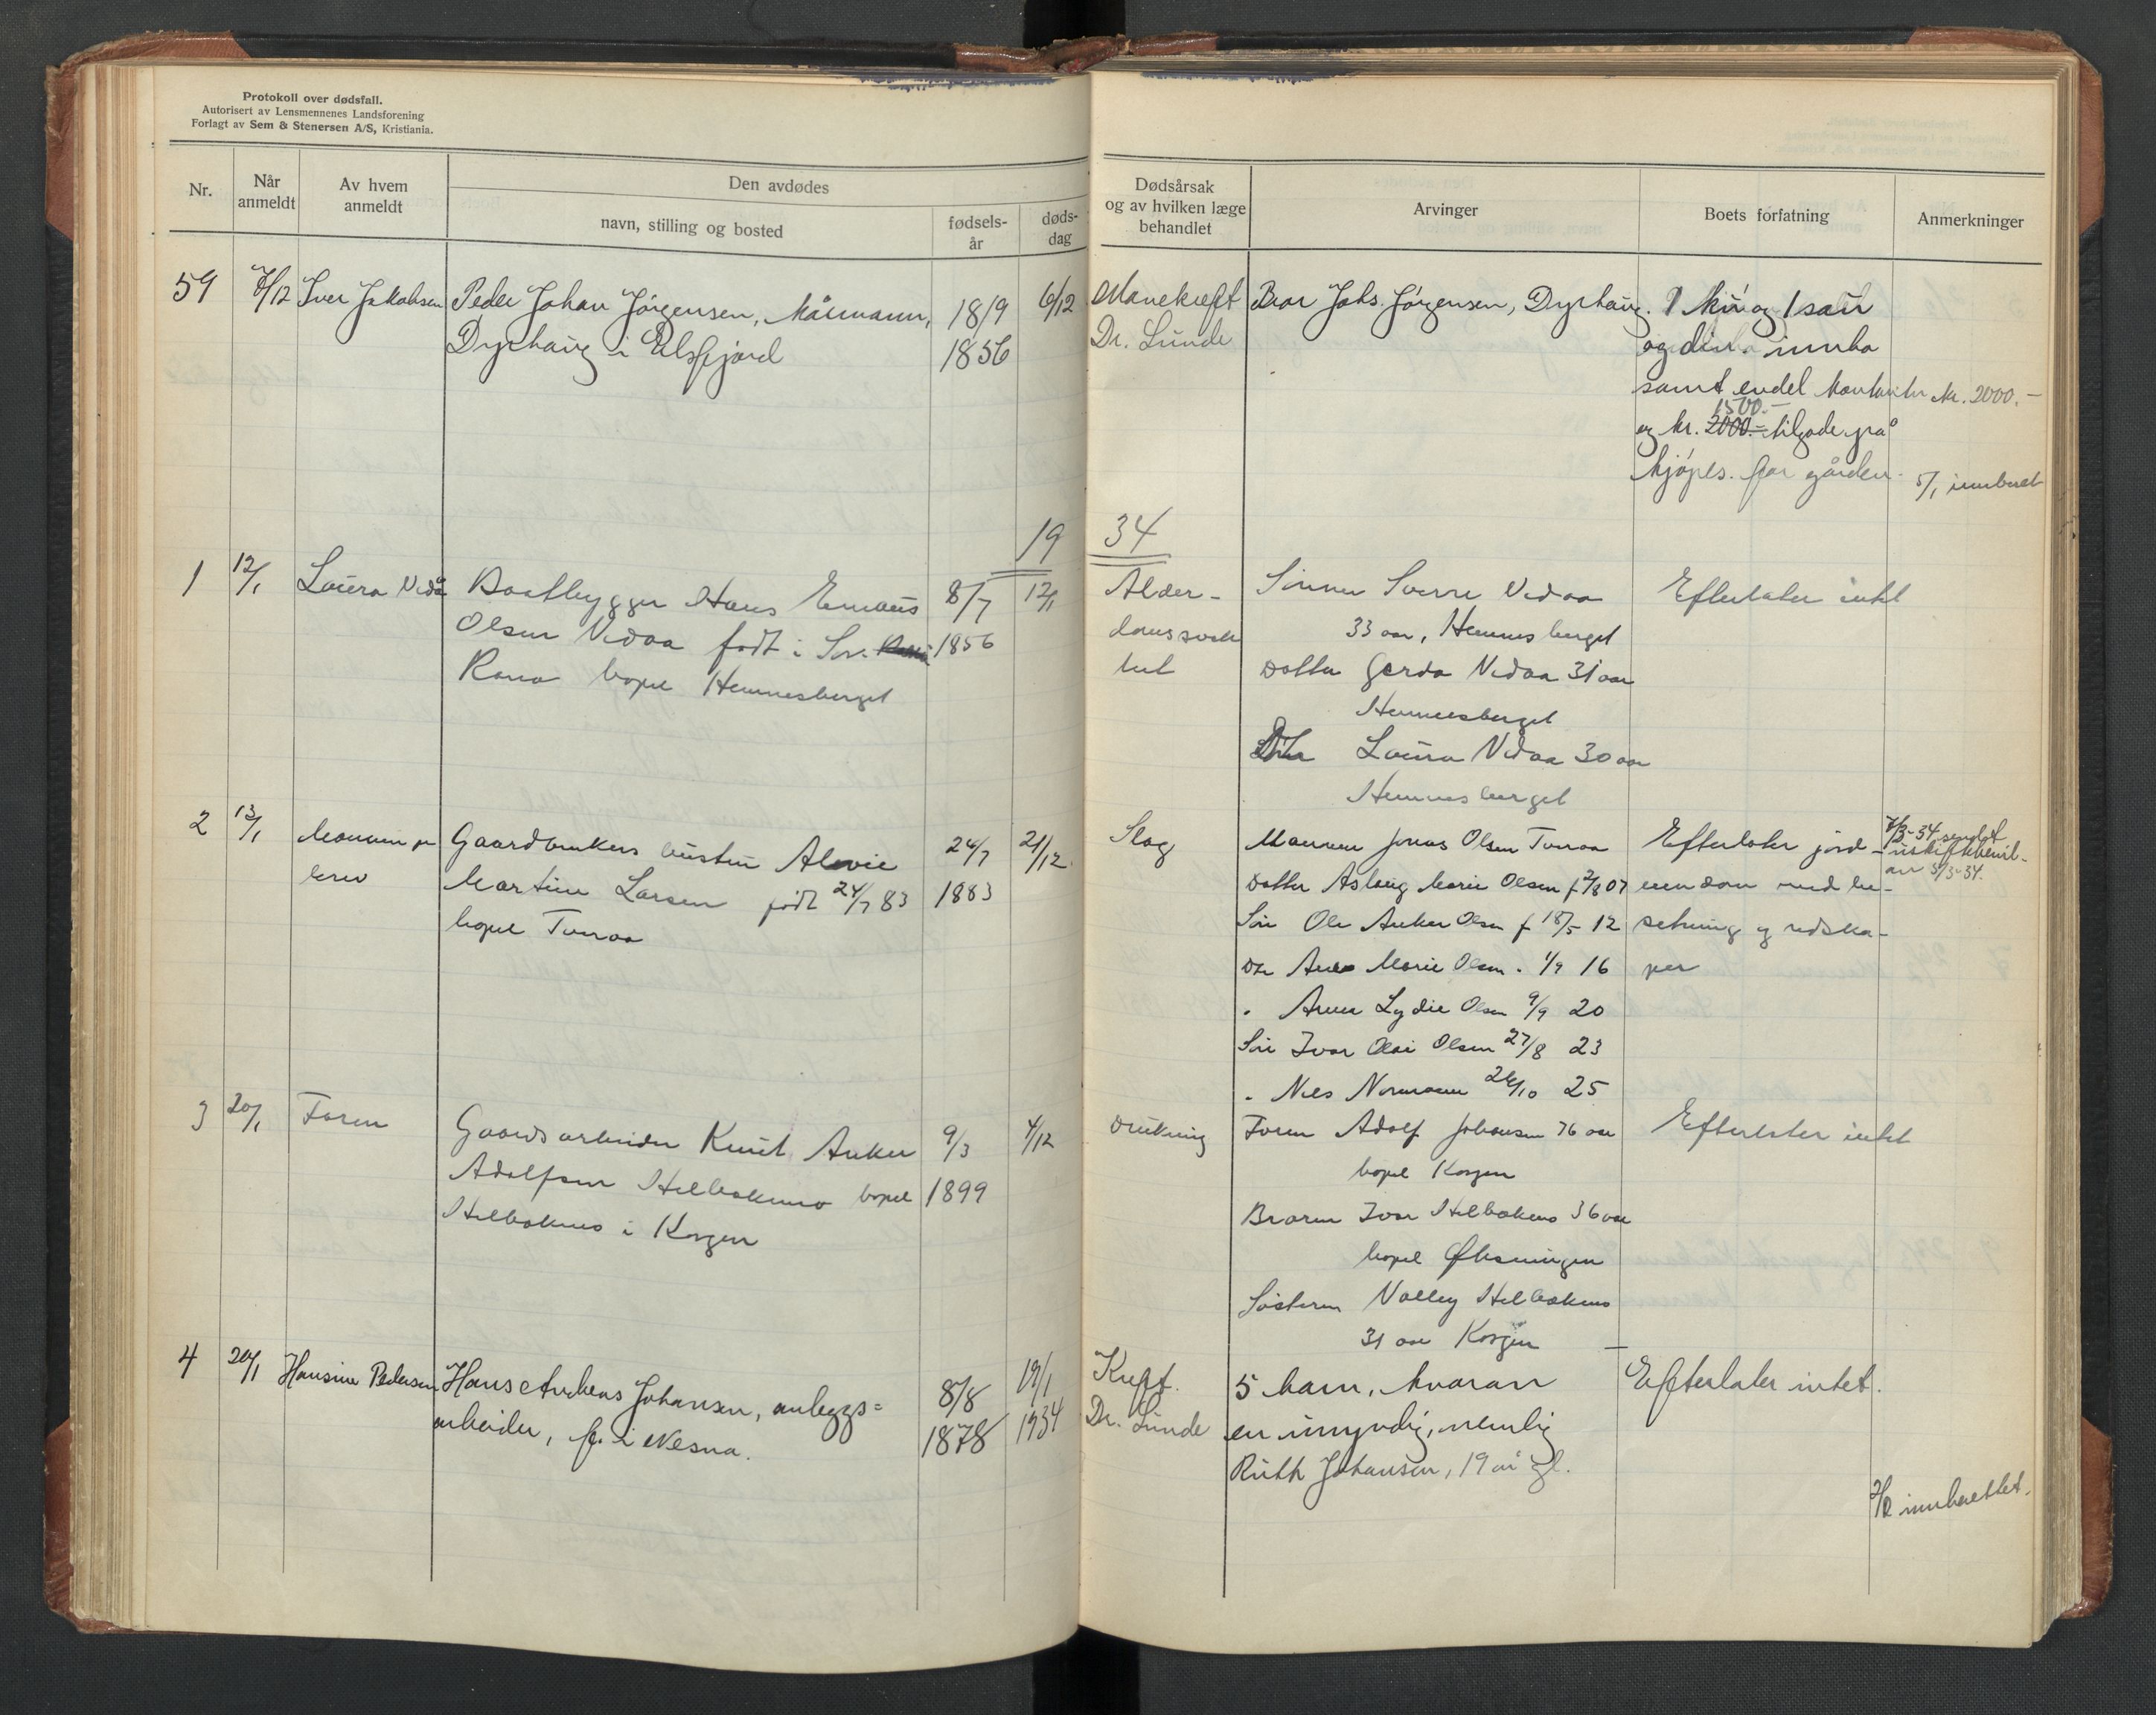 Protokoll over dødsfall.
Autorisert av Lensmennenes Landsforening
Forlagt av Sem & Stenersen A/S, Kristiania.
Nr.
Når anmeldt
Av hvem anmeldt
Den avdødes
navn, stilling og bosted
fødsels-
år
døds-
dag
Dødsårsak
og av hvilken læge
behandlet
Arvinger
Boets forfatning
Anmerkninger
59 7/12 Iver Jakobsen Peder Johan Jørgensen, kårmann, 18/9 6/12
Dyrhaug i Elsfjord 1856
Mavekreft Bror Johs. Jørgensen, Dyrhaug. 1 ku og 1 sau
Dr. Lunde og div. innbo
samt endel kontanter kr. 2000.-
1500.-
og kr. 2000.- tilgode på
kjøpes. for gården. 5/1 innberet
19 34
1 12/1 Laura Vedå Baatbygger Hans Emaus 8/7 12/1
Olsen Vedaa født i Sør. 1856
Rana bopel Hemnesberget
Alder- Sønnen Sverre Vedaa Efterlater intet
domssvak 33 aar, Hemnesberget
het Datter Gerda Vedaa 31 aar
Hemnesberget
Laura Vedaa 30 aar
Hemnesberget
2 13/1 Mannen pr Gaardbrukers hustru Alovie 24/7 21/12
brev Martine Larsen født 24/7 83 1883
bopel Tveraa
Slag Mannen Jonas Olsen Tveraa Efterlater jord- 7/3-34 sendt
uskiftebevil-
an 5/3-34.
Datter Aslaug Marie Olsen f 2/8 07 eiendom med be-
Søn Ole Anker Olsen f 18/5 12 setning og redska-
Dtr Marie Olsen. 1/9 16 per
" Anna Lydie Olsen 9/9 20
Søn Ivar Olai Olsen 27/8 23
" Nils Normann 26/10 25
3 20/1 Faren Gaardsarbeider Knut Anker 9/3 4/12
Adolfsen Helbakmo bopel 1899
Helbakmo i Korgen
Drukning Faren Adolf Johansen 76 aar Efterlater intet
bopel Korgen
Broren Ivar Helbakmo 36 aar
bopel
Søsteren Valley Helbakmo
31 aar Korgen
4 20/1 Hansine Pedersen Hans Andreas Johansen, anleggs= 8/8 19/1
arbeider, f. i Nesna. 1878 1934
Kreft. 5 barn, hvorav Efterlater intet.
Dr. Lunde en umyndig, nemlig
Ruth Johansen, 19 år gl.
innberettet.